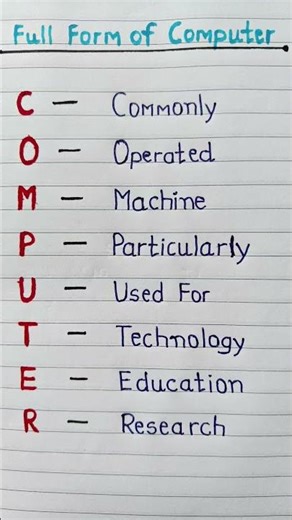 Full Form of Computer
C — Commonly
O — Operated
M — Machine
P — Particularly
U — Used For
T — Technology
E — Education
R — Research